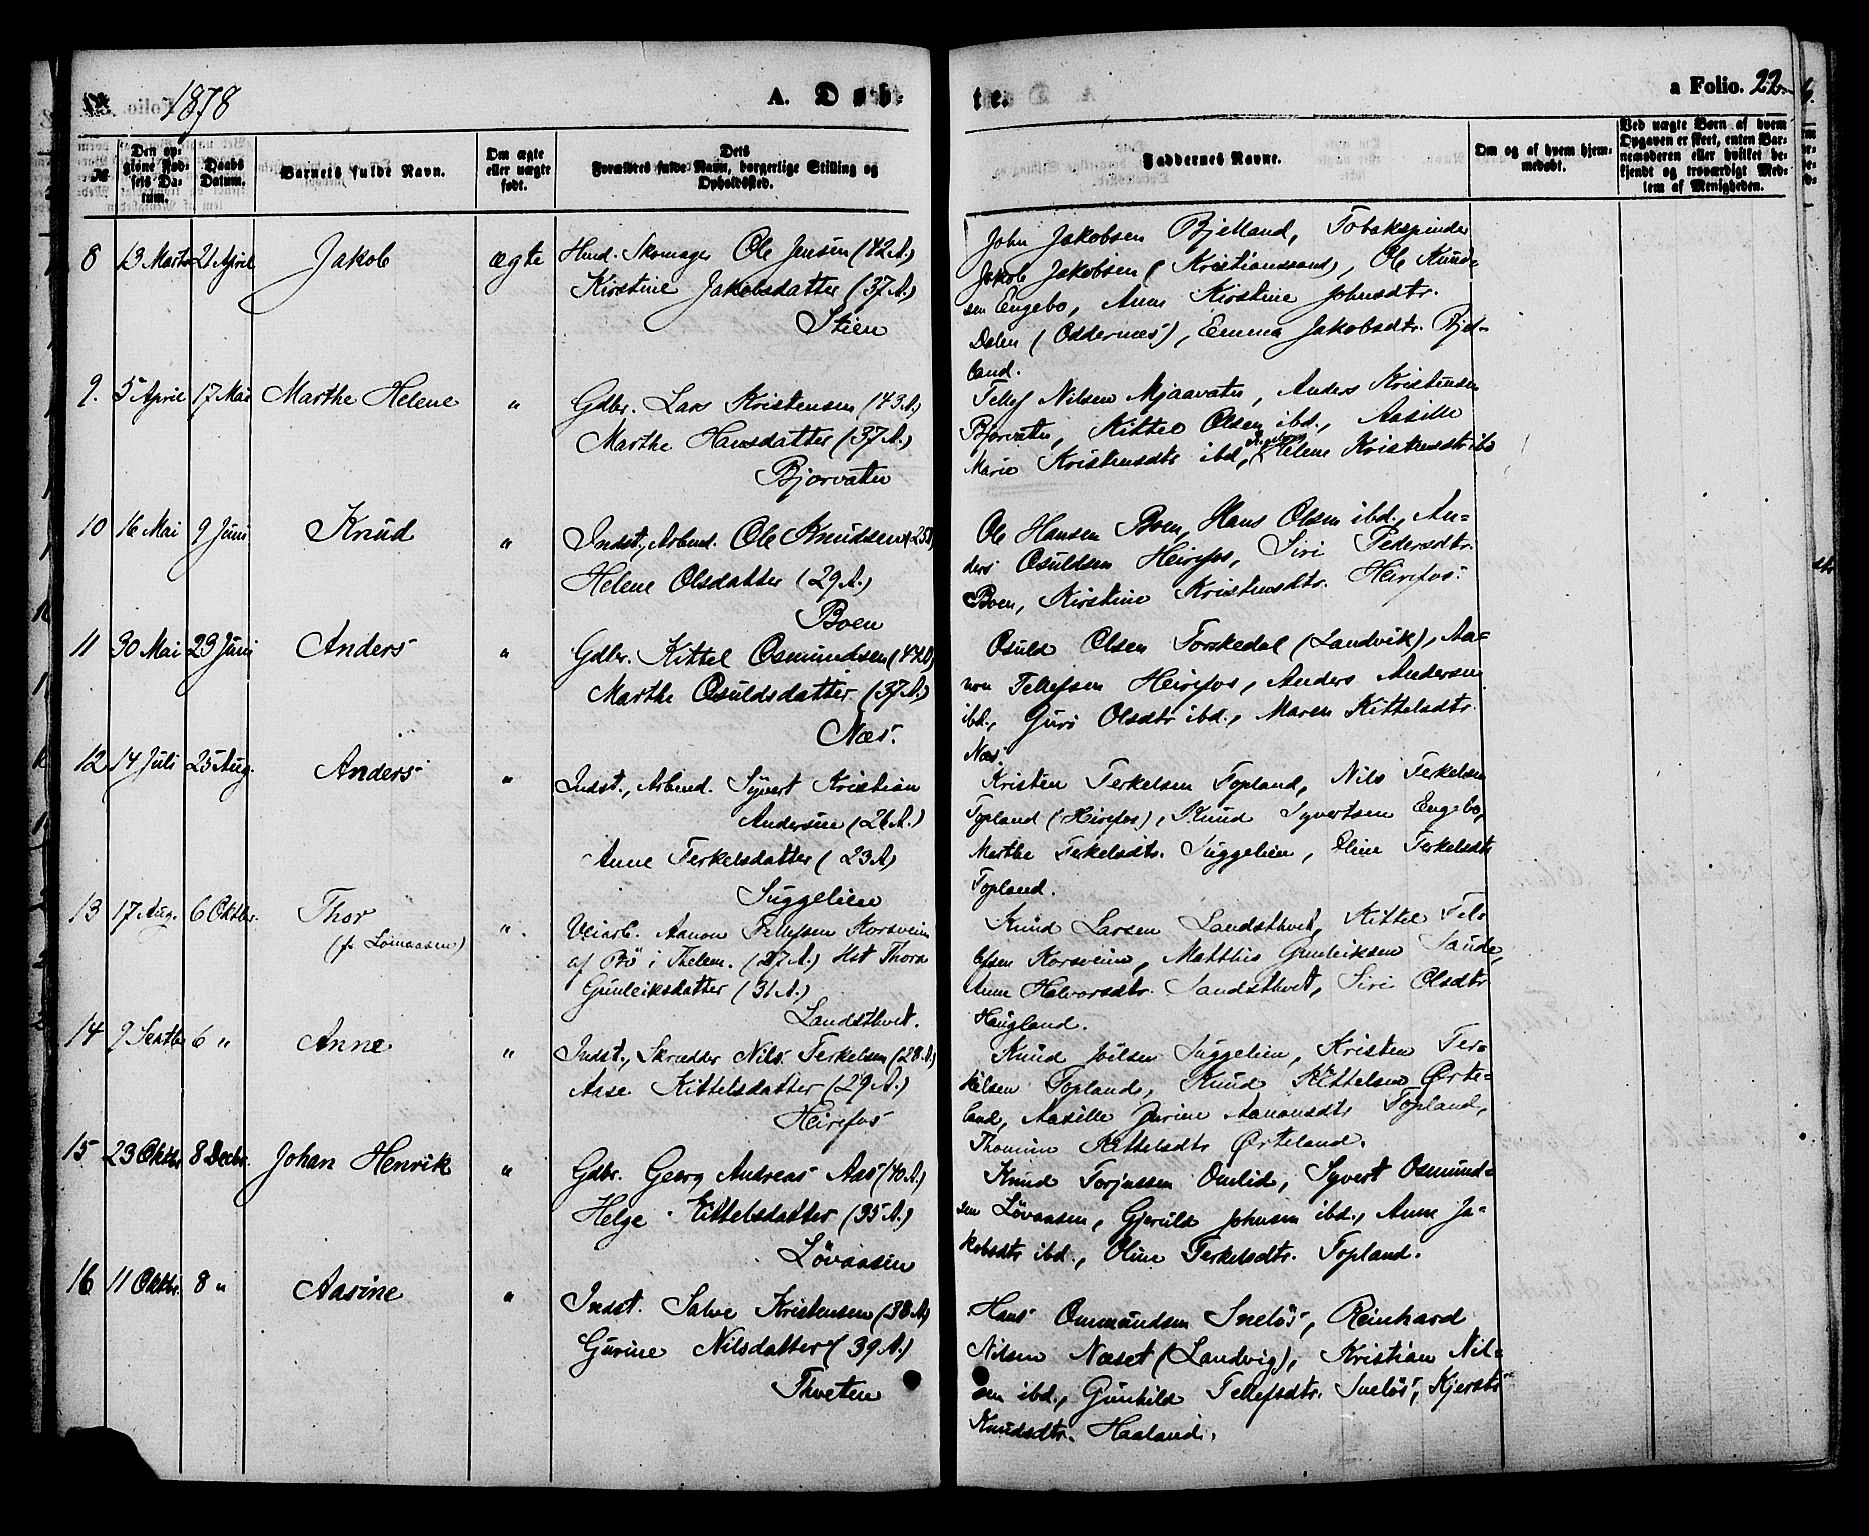 1878
A. Døb-
te.
a Folio. 22.
№
Den opgivne Fødsels Datum.
Daabs Datum.
Barnets fulde Navn.
Om ægte eller uægte født.
Dets Forældres fulde Navn, borgerlige Stilling og Opholdssted.
Faddernes Navne.
Om og af hvem hjemmedøbt.
Ved uægte Børn af hvem Opgaven er skeet, enten Barnemoderen eller hvilket bekjendt og troværdigt Medlem af Menigheden.
8 13 Marts 21 April Jakob ægte Huusl. Skomager Ole Jensen (42 A.)
Kirstine Jakobsdatter (37 A.)
Stien
John Jakobsen Bjelland, Tobakspinder
Jakob Jakobsen (Kristianssand), Ole Knud-
sen Engebo, Anne Kirstine Johnsdtr.
Dalen (Oddernæs), Emma Jakobsdtr. Bjel-
land.
9. 5 April 17 Mai Marthe Helene " Gdbr. Lars Kristensen (43 A.)
Marthe Hansdatter (37 A.)
Bjorvatn
Tellef Nilsen Mjaavatn, Anders Kristensen
Bjorvatn, Kittel Olsen ibd., Aasille
Marie Kristensdtr ibd, Helene Kristensdtr ibd
10 16 Mai 9 Juni Knud " Indst., Arbmd. Ole Knudsen (25 A)
Helene Olsdatter (29 A.)
Boen
Ole Hansen Boen, Hans Olsen ibd., An-
ders Osuldsen Heirefos, Siri Pedersdtr.
Boen, Kirstine Kristensdtr. Heirefos.
11 30 Mai 23 Juni Anders " Gdbr. Kittel Osmundsen (44 A)
Marthe Osuldsdatter (37 A.)
Næs.
Osuld Olsen Torskedal (Landvik), Aa-
non Tellefsen Heirefos, Anders Andersen
ibd., Guro Olsdtr ibd., Maren Kittelsdtr.
Næs.
12 14 Juli 25 Aug. Anders " Indst., Arbmd. Syvert Kristian
Andersen (26 A.)
Anne Terkelsdatter (23 A)
Suggelien
Kristen Terkelsen Topland, Nils Terkelsen
Topland (Heirefos), Knud Syvertsen Engebo,
Marthe Terkelsdtr. Suggelien, Oline Terkelsdtr
Topland.
13 17 Aug. 6 Oktbr. Thor ". Veiarb. Aanon Tellefsen Korsveien
af Bø i Thelem. (27 A.) Hst Thora
(fr Löivaasen)
Gunleiksdatter (31 A.)
Landsthvet.
Knud Larsen Landsthvet, Kittel Tel-
lefsen Korsveien, Matthis Gunleiksen Sande,
Anne Halvorsdtr. Landsthvet, Siri Olsdtr
Haugland.
14 9 Septbr 6 " Anne " Indst., Skrædder Nils Terkelsen (28 A.)
Aase Kittelsdatter (29 A.)
Heirefos
Knud Joilsen Suggelien, Kristen Ter-
kelsen Topland, Knud Kittelsen Ørte-
land, Aasille Jurine Aanonsdtr Topland,
Thomine Kittelsdtr Ørteland.
15 23 Oktbr 8 Decbr. Johan Henrik " Gdbr. Georg Andreas Aas (40 A.)
Helge Kittelsdatter (35 A.)
Løvaasen
Knud Torjussen Omlid, Syvert Osmund-
sen Løvaasen, Gjeruld Johnsen ibd., Anne Ja-
kobsdtr ibd., Oline Terkelsdtr. Topland.
16 11 Oktbr. 8 " Aasine " Indst. Salve Kristensen (38 A)
Gurine Nilsdatter (39 A.)
Thveten
Hans Ommundsen Sneløs, Reinhard
Nilsen Næset (Landvig), Kristian Nil-
sen ibd., Gunhild Tellefsdtr. Sneløs, Kjersti
Knudsdtr. Haaland.